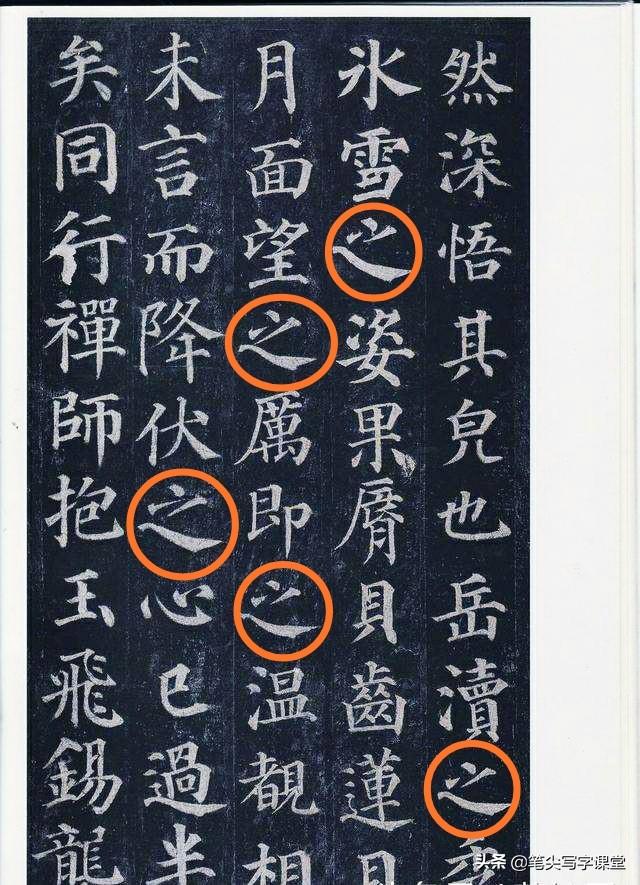 然深悟其皃也岳瀆之
氷雪之姿果脣貝齒蓮目
月面望之厲即之温覩相
未言而降伏之心已過半
矣同行禪師抱玉飛錫龍
头条 @笔尖写字课堂